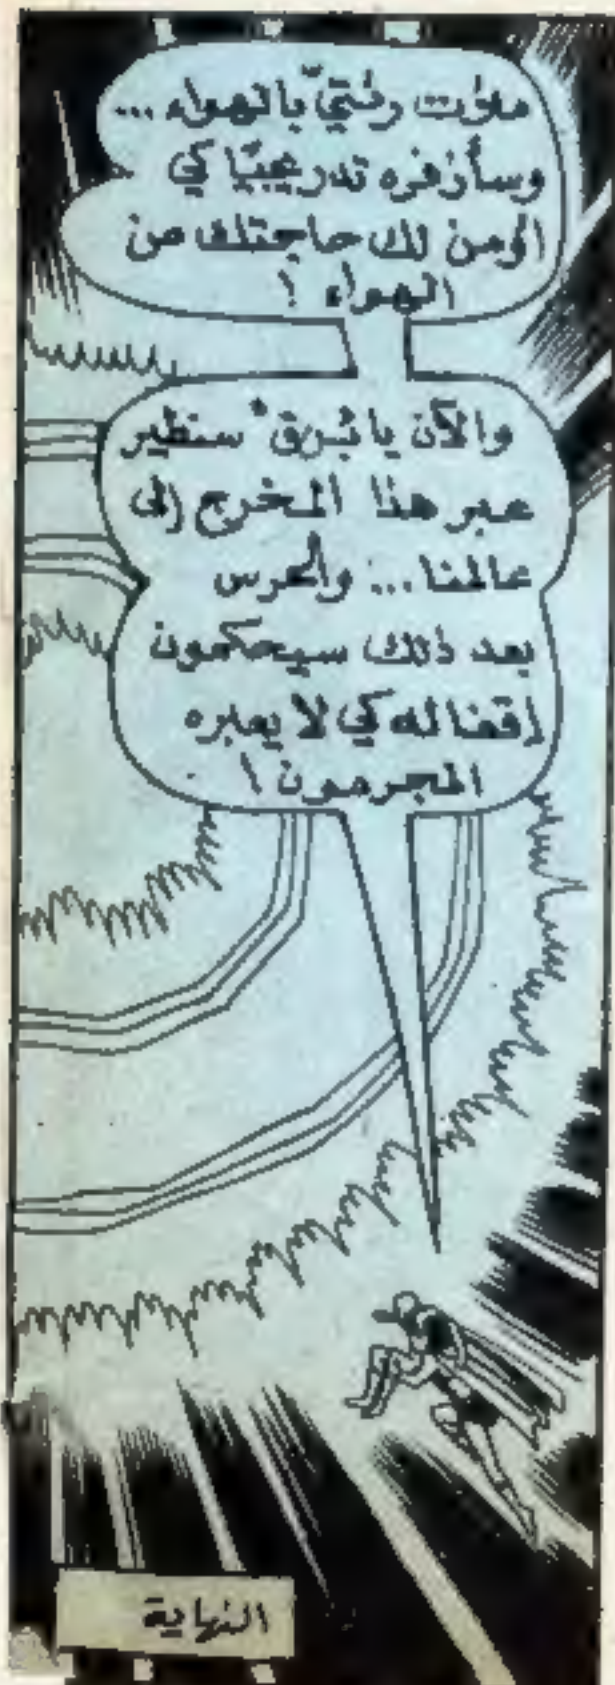 ملؤت رئتيّ بالهواء ...
وسأزفره تدريجيًا كي
أؤمن لك حاجتك من
الهواء !
والآن يا "برق" سنطير
عبر هذا المخرج إلى
عالمنا ... والحرس
بعد ذلك سيحكمون
إقفاله كي لا يعبره
المجرمون !
النهاية